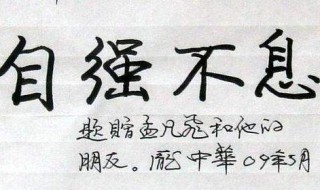 自强不息
题贈孟凡飛和他的
朋友。龐中華09年5月